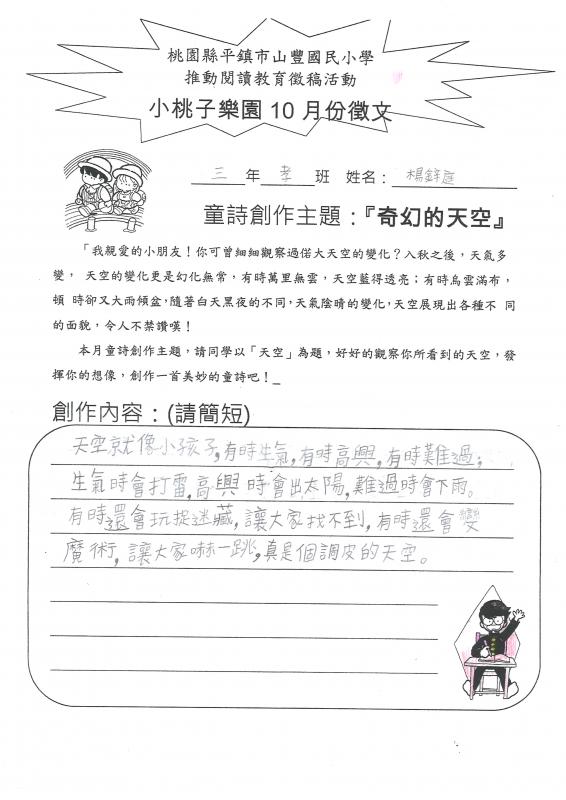 桃園縣平鎮市山豐國民小學
推動閱讀教育徵稿活動
小桃子樂園 10 月份徵文
三 年 孝 班 姓名: 楊
童詩創作主題:『奇幻的天空』
「我親愛的小朋友!你可曾細細觀察過偌大天空的變化?入秋之後,天氣多
變, 天空的變化更是幻化無常,有時萬里無雲,天空藍得透亮;有時烏雲滿布,
頓 時卻又大雨傾盆,隨著白天黑夜的不同,天氣陰晴的變化,天空展現出各種不 同
的面貌,令人不禁讚嘆!
本月童詩創作主題,請同學以「天空」為題,好好的觀察你所看到的天空,發
揮你的想像,創作一首美妙的童詩吧!_
創作內容:(請簡短)
天空就像小孩子,有時生氣,有時高興,有時難過;
生氣時會打雷,高興時會出太陽,難過時會下雨。
有時還會玩捉迷藏,讓大家找不到,有時還會變
魔術,讓大家嚇一跳,真是個調皮的天空。